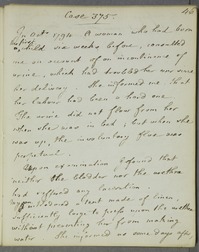 46
Case 375.
In Octr. 1794 A woman who had born
a child six weeks before, consulted
me on account of an incontinence of
urine, which had troubled her ever since
her delivery. She informed me that
her labour had been a hard one.
The urine did not flow from her
when she was in bed, but when she
was up, the involuntary flow was
perpetual.
Upon examination I found that
neither the bladder nor the urethra
had suffered any laceration.
I introduced a tent made of linen,
sufficiently large to press upon the urethra
without preventing her from making
water. She informed me some days after